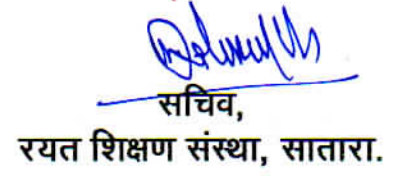 सचिव,
रयत शिक्षण संस्था, सातारा.